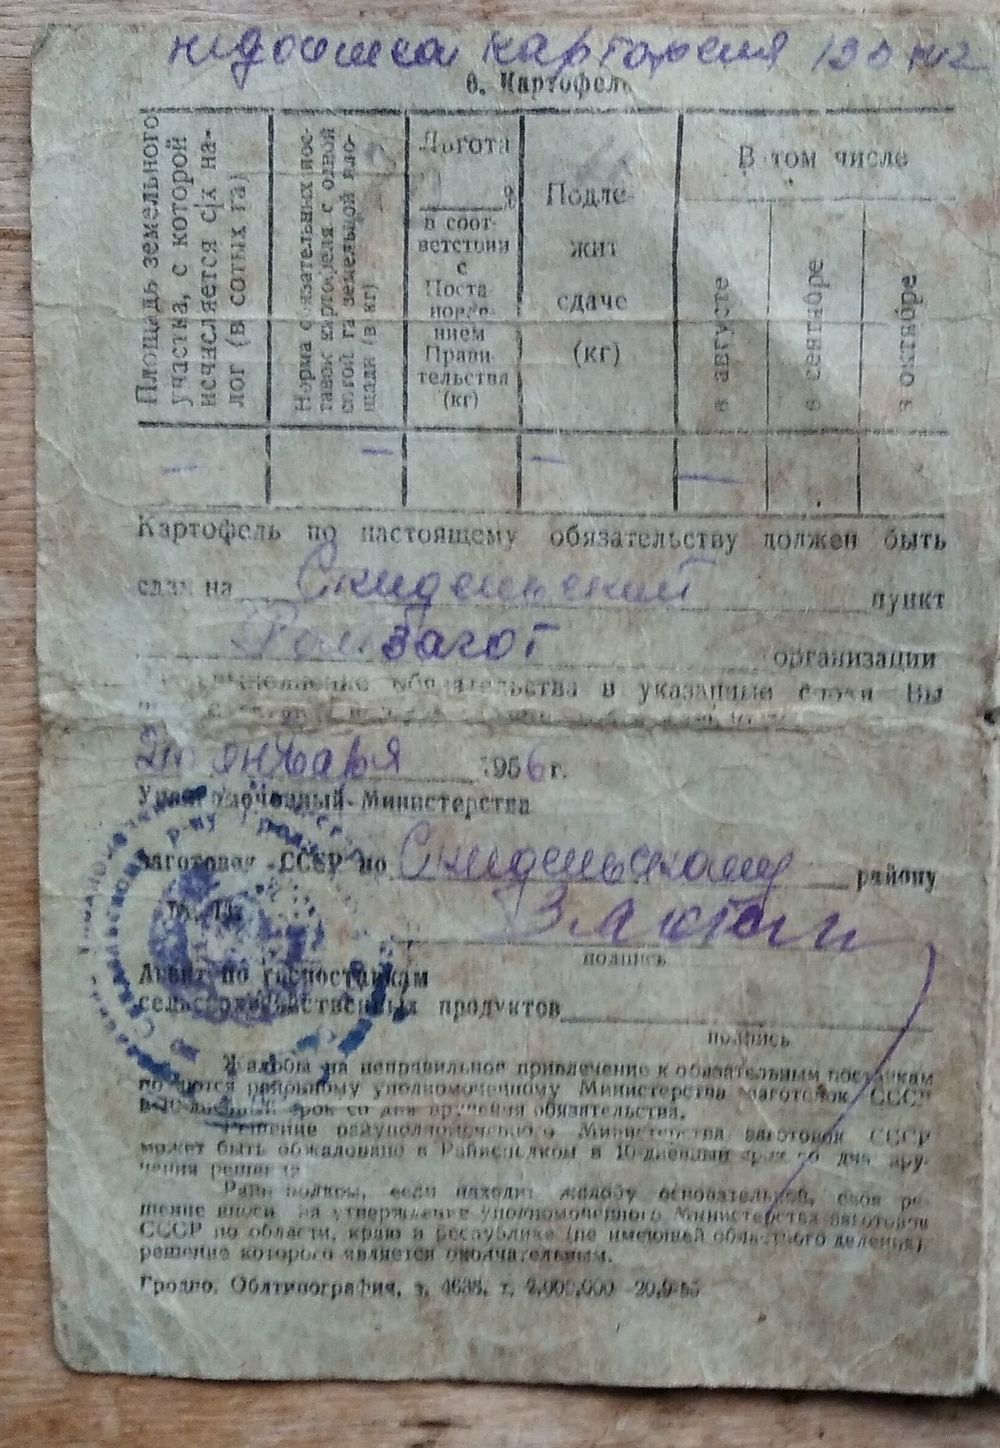 недоимка картофеля 130 кг
6. Картофель
Площадь земельного
участка, с которой
исчисляется с|х на-
лог (в сотых га)
Норма обязательных пос-
тавок картофеля с одной
сотой га земельной пло-
щади (в кг)
Льгота
%
в соот-
ветствии
с
Поста
новле-
нием
Прави-
тельства
(кг)
Подле-
жит
сдаче
(кг)
В том числе
в августе
в сентябре
в октябре
— — — —
Картофель по настоящему обязательству должен быть
сдан на Скидельский пункт
загот организации
обязательства в указанные сроки Вы
января 1956 г.
Уполномоченный Министерства
заготовок СССР по Скидельскому району
подпись
Агент по госпоставкам
сельскохозяйственных продуктов
подпись
Жалобы на неправильное привлечение к обязательным поставкам
подаются районному уполномоченному Министерства заготовок СССР
в 10-дневный срок со дня вручения обязательства.
Решение райуполномоченного Министерства заготовок СССР
может быть обжаловано в Райисполком в 10-дневный срок со дня вру-
чения решения
Райисполком, если находит жалобу основательной, свое ре-
шение вносит на утверждение уполномоченного Министерства заготовок
СССР по области, краю и республике (не имеющей областного деления)
решение которого является окончательным.
Гродно, Облтипография, з. 4638, т. 2.000.000 20,9-55